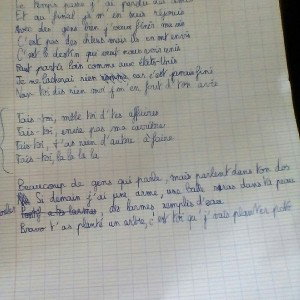 Le temps passe j'ai perdu des amis
Et au final je m'en suis réjouis
Avec des gens bien j'veux finir ma vie
C'est pas des chiens mais ils en ont envie
C'est le destin que veut nous voir unis
Faut partir loin comme aux états-Unis
Je ne lâcherai rien car c'est jamais fini
Vas-toi des rien moi j'm'en fout d'ton avis
Tais-toi, mêle toi d'tes affaires
Tais-toi, envie pas ma carrière
Tais-toi, t'as rien d'autre à faire
Tais-toi, la la la la
Beaucoup de gens qui parle, mais parlent dans ton dos
Si demain j'ai une arme, une balle dans ta peau
des larmes remplies d'eau
Bravo t'as planté un arbre, c'est toi qu'j'vais planter